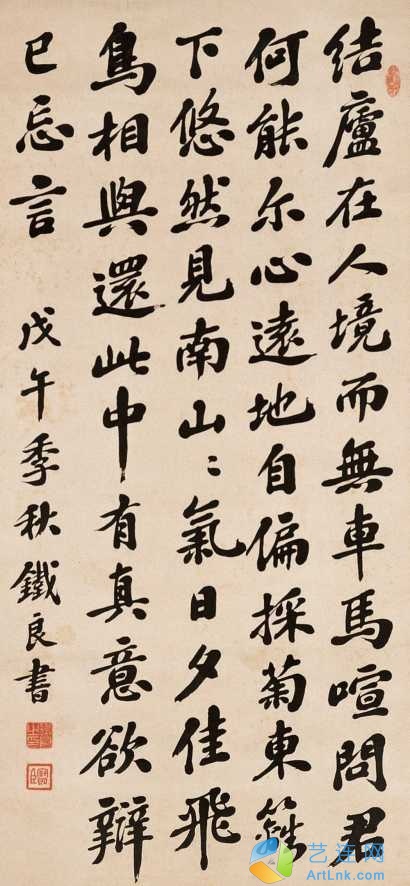 結廬在人境而無車馬喧問君
何能尔心遠地自偏採菊東籬
下悠然見南山〻氣日夕佳飛
鳥相與還此中有真意欲辯
已忘言
戊午季秋鐵良書
艺连网
ArtLink.com